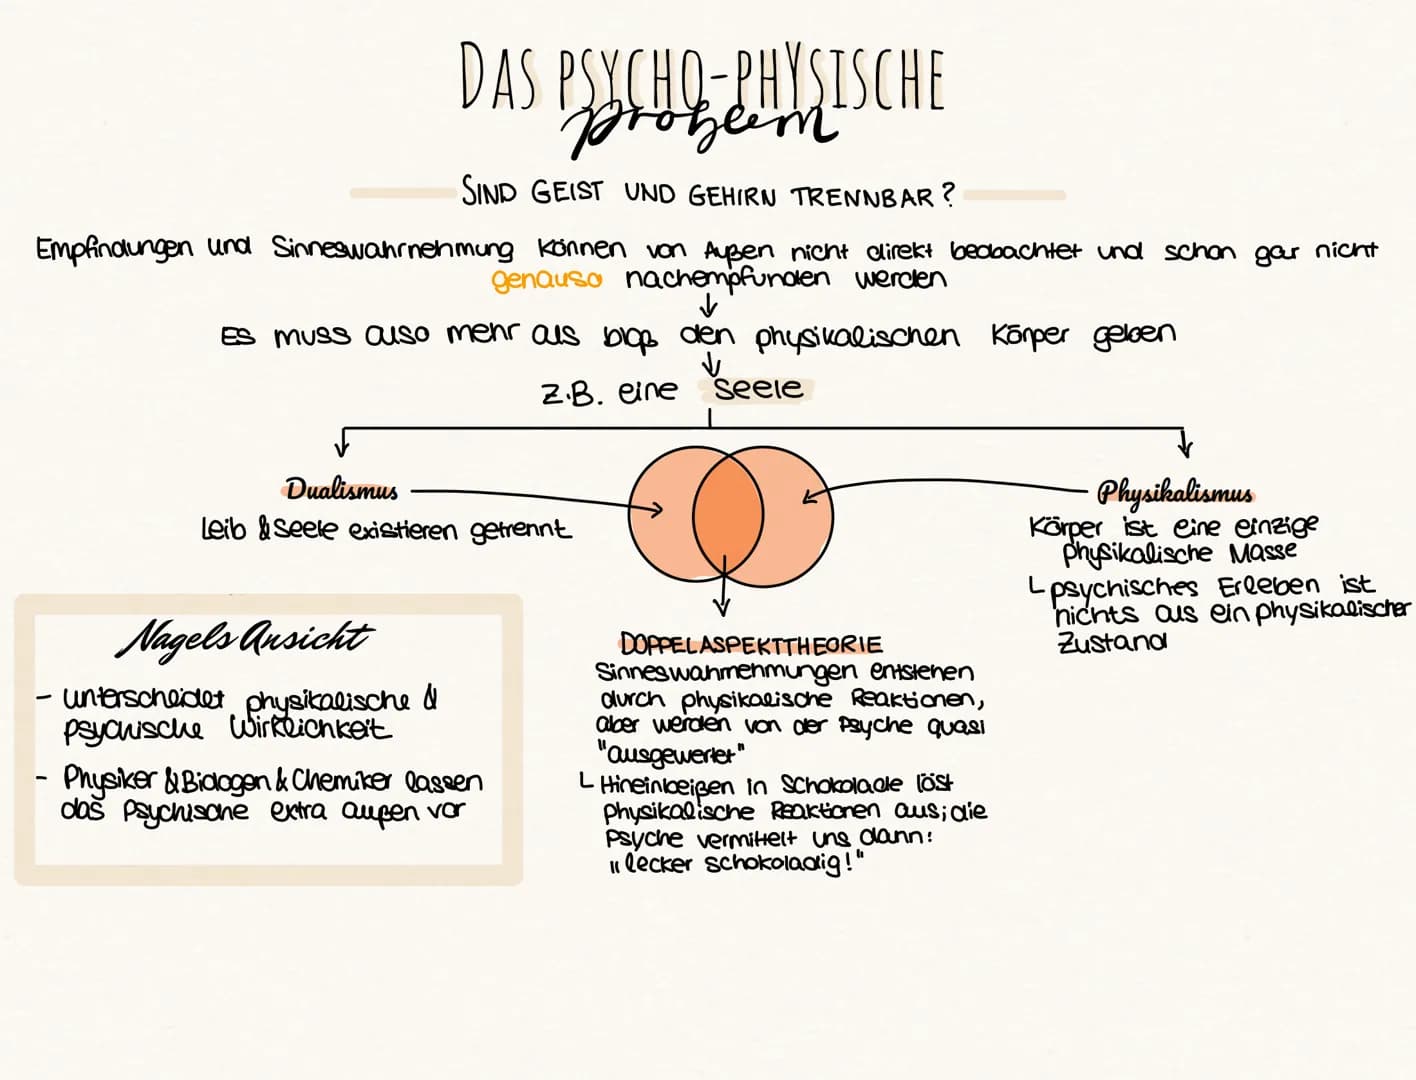 DAS PSYCHO-PHYSISCHE
problem
SIND GEIST UND GEHIRN TRENNBAR?
Empfindungen und Sinneswahrnehmung können von Außen nicht direkt beobachtet und schon gar nicht
genauso nachempfunden werden
Es muss also mehr als bloß den physikalischen Körper geben
Z.B. eine Seele
Dualismus
Leib & Seele existieren getrennt
Physikalismus
Körper ist eine einzige
physikalische Masse
psychisches Erleben ist
nichts als ein physikalischer
Zustand
Nagels Ansicht
- unterscheidet physikalische &
psychische Wirklichkeit
- Physiker & Biologen & Chemiker lassen
das Psychische extra außen vor
DOPPELASPEKTTHEORIE
Sinneswahrnehmungen entstehen
durch physikalische Reaktionen,
aber werden von der Psyche quasi
"ausgewertet"
Hineinbeißen in Schokolade löst
physikalische Reaktionen aus; die
Psyche vermittelt uns dann:
"lecker schokoladig!"